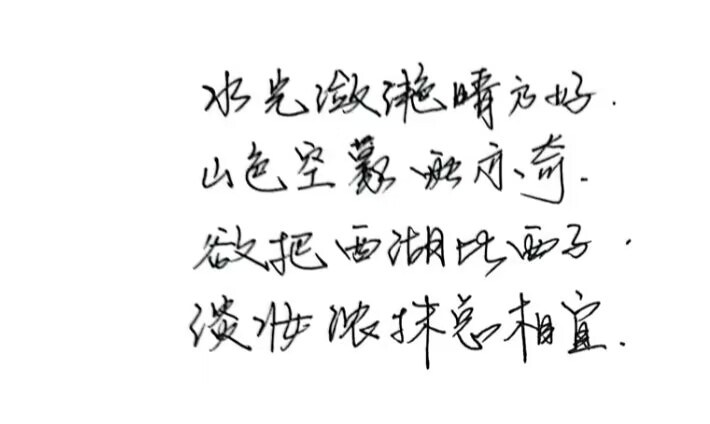 水光潋滟晴方好.
山色空蒙雨亦奇.
欲把西湖比西子.
淡妆浓抹总相宜.